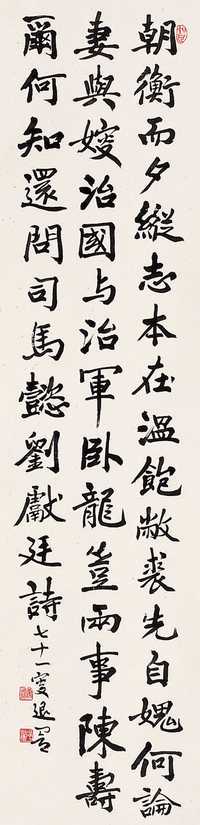 朝衡而夕縱志本在溫飽敝裘先自媿何論
妻與嫂治國与治軍臥龍豈兩事陳壽
爾何知還問司馬懿劉獻廷詩七十一叟退